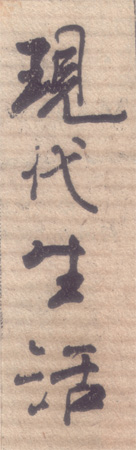 現代生活